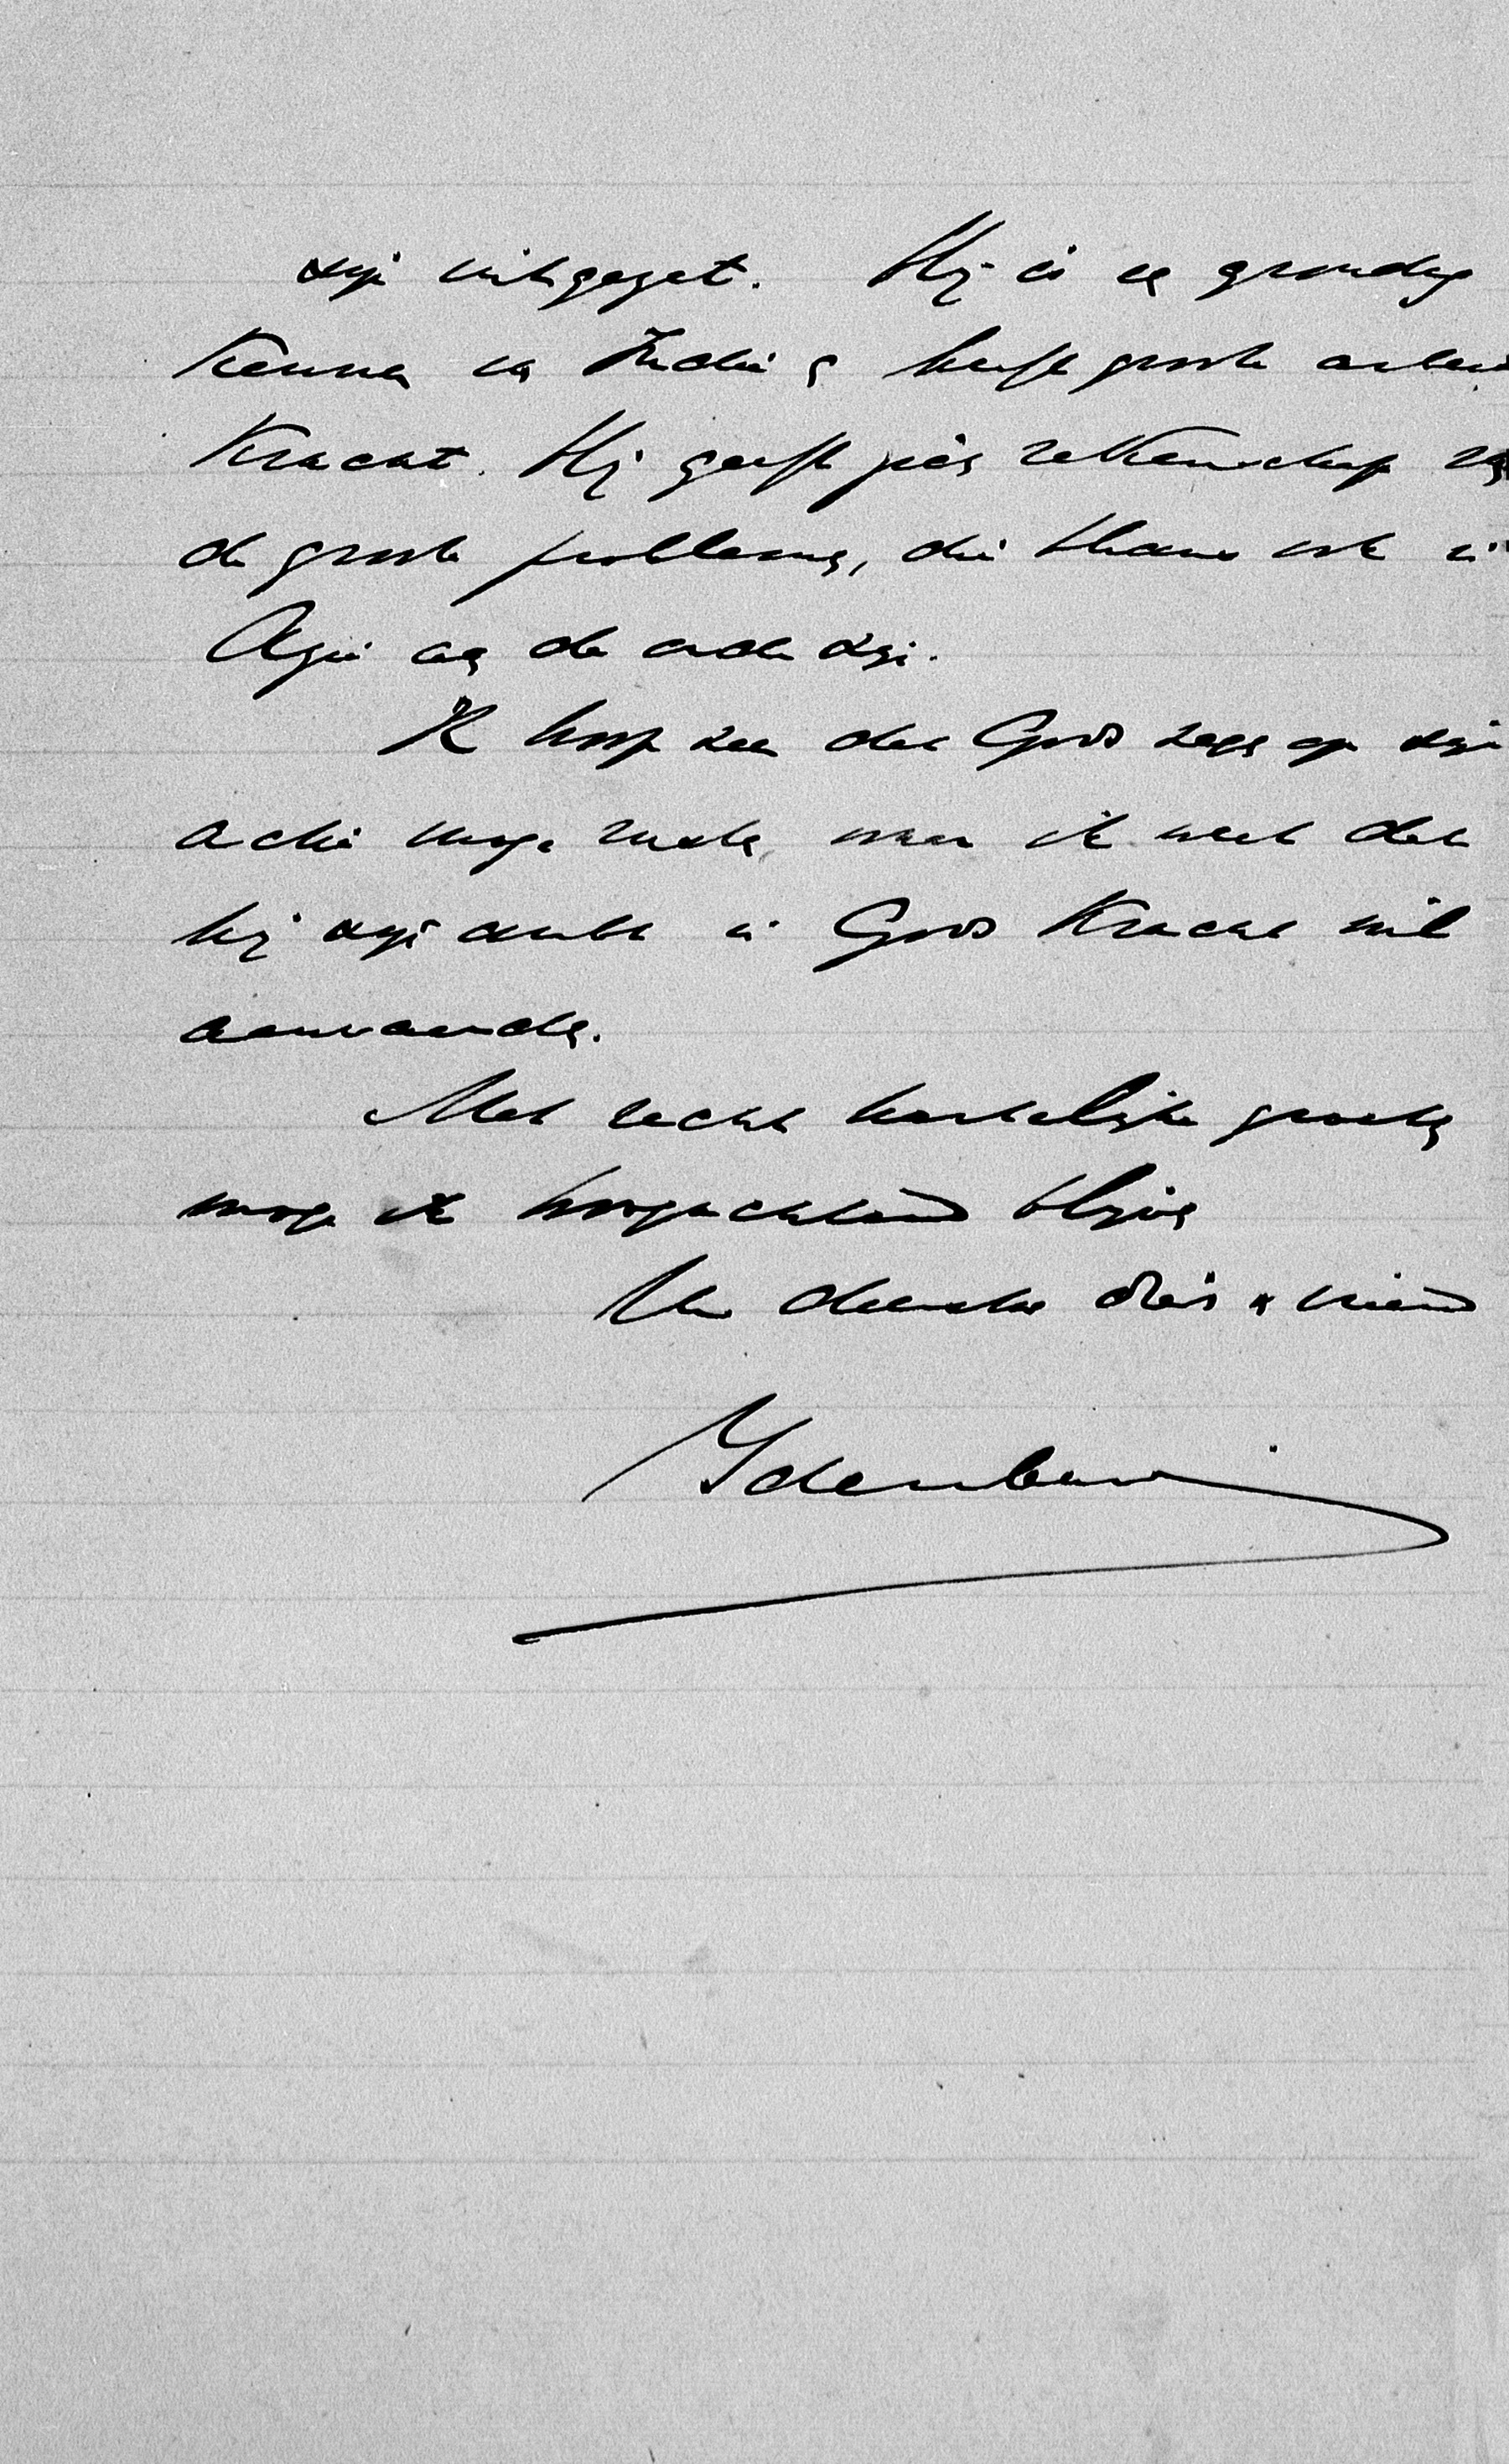 zijn uitgezet. Hij is een grondig
Kenner van Indië en heeft groote arbeids
Kracht. Hij geeft zich rekenschap van
de groote problemen, die thans ook in
Azië aan de orde zijn.
Ik hoop zeer dat Gods zegen op zijn
actie moge rusten, maar ik weet dat
hij zijn ambt in Gods Kracht wil
aanvaarden.
Met recht hartelijke groeten
moge ik hoogachtend blijven
Uw dienstw. en vriend
Idenburg